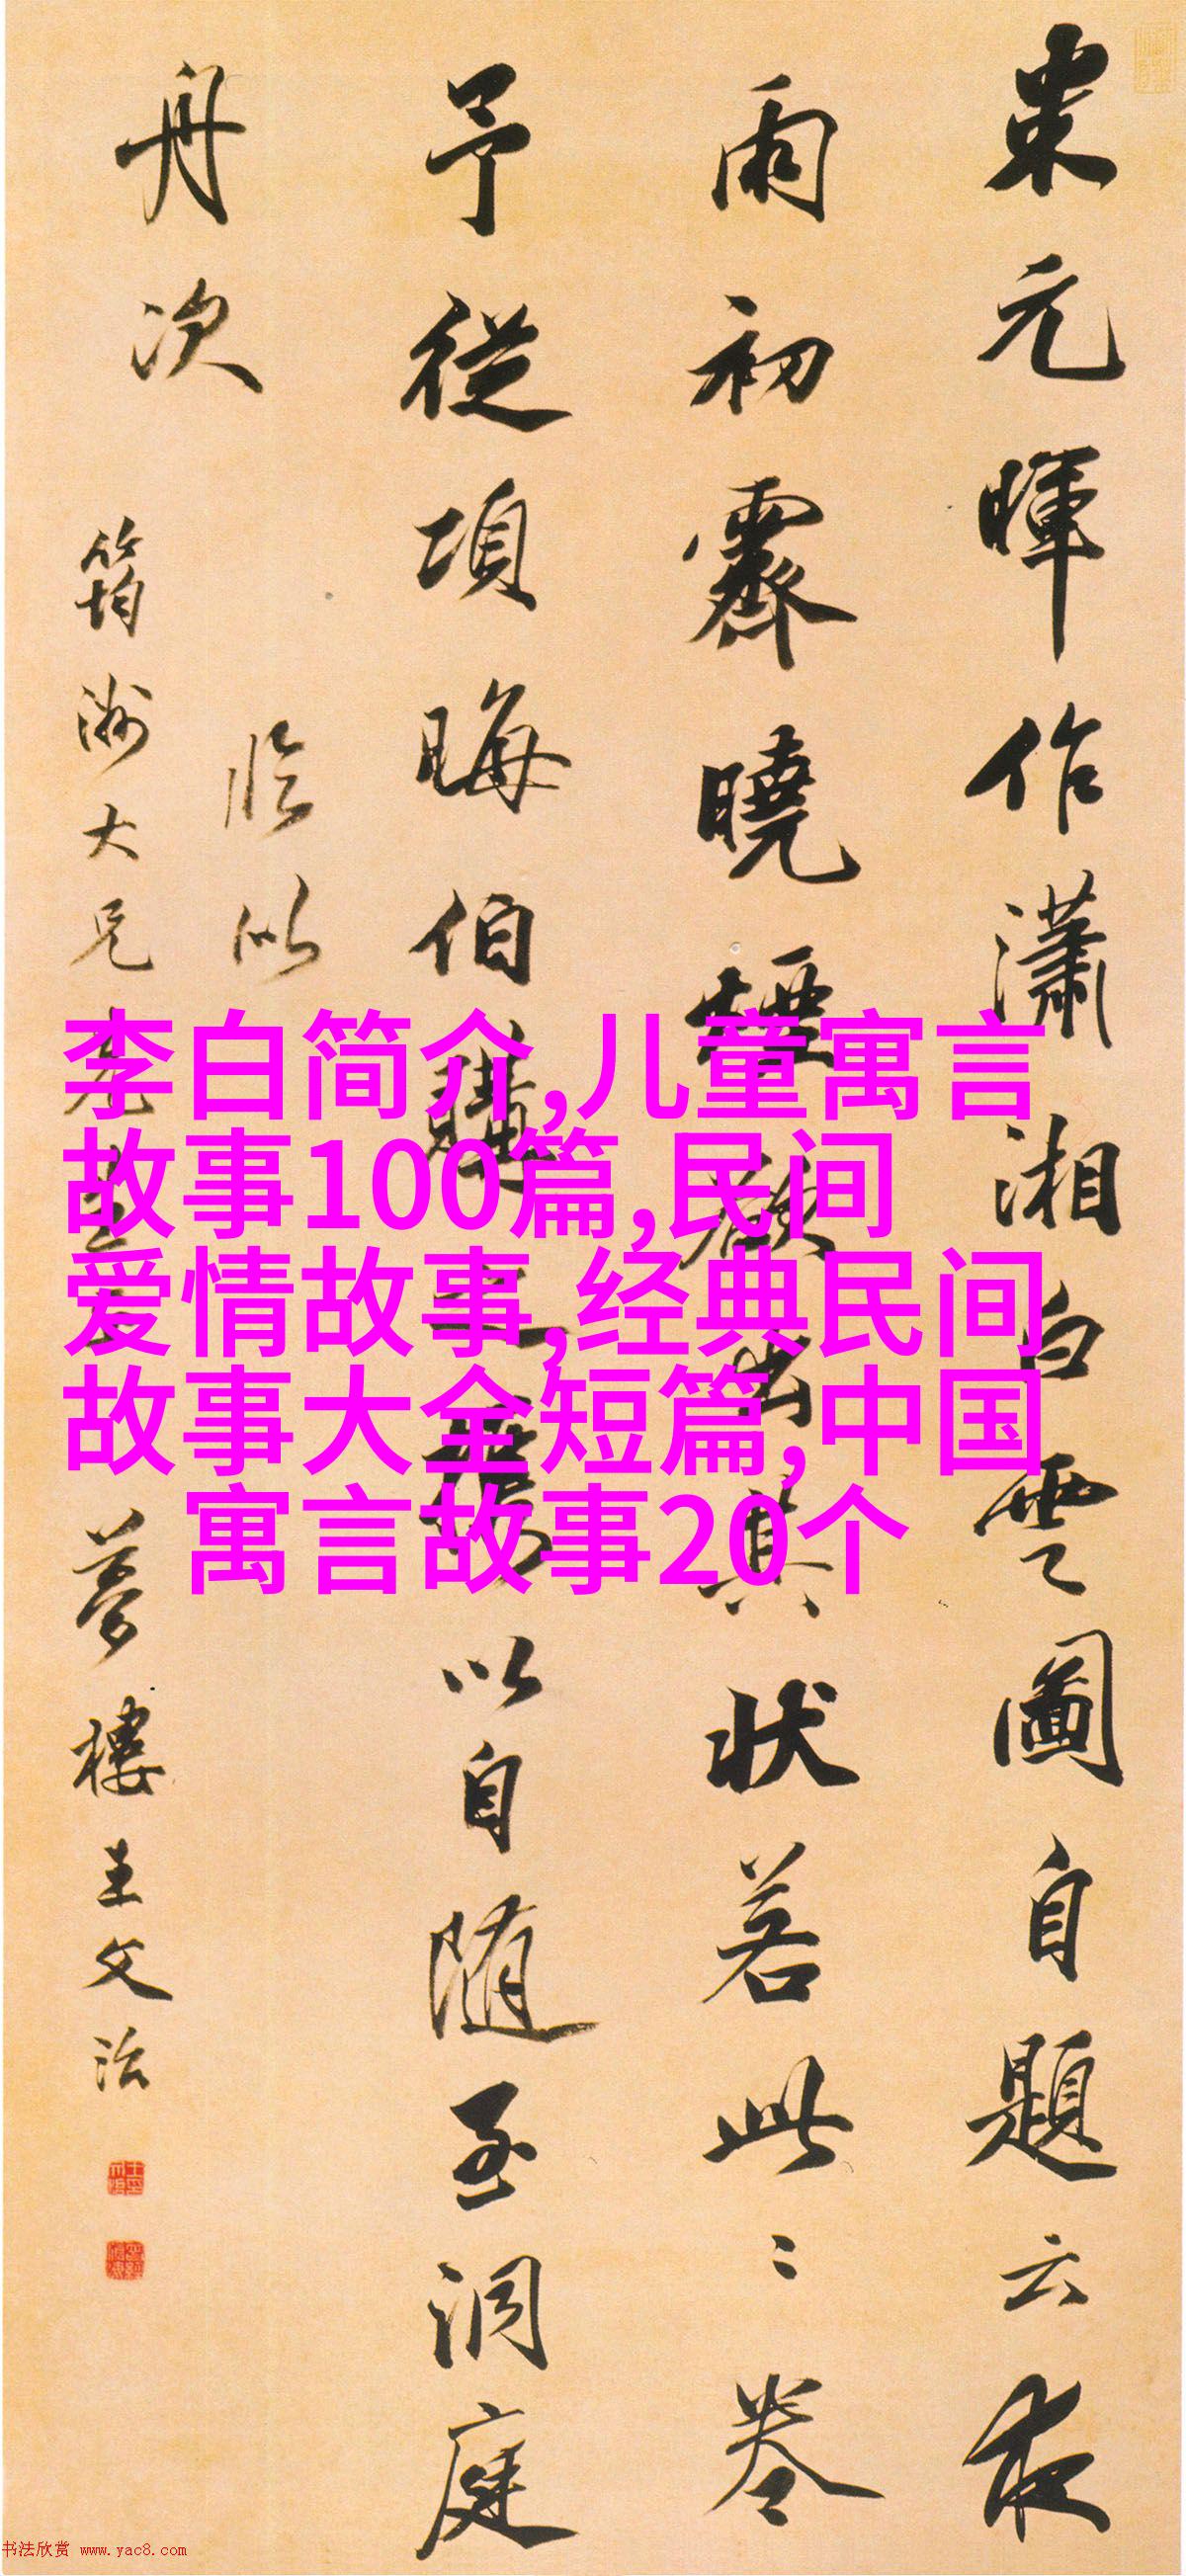 米元暉作瀟湘白雲圖自題云夜
雨初霽曉煙欲出其状若此〻卷
予從項晦伯購之攜以自随至洞庭
舟次
臨似
筠洲大兄先生
夢樓王文治
李白简介,儿童寓言
故事100篇,民间
爱情故事,经典民间
故事大全短篇,中国
寓言故事20个
书法欣赏 www.yac8.com